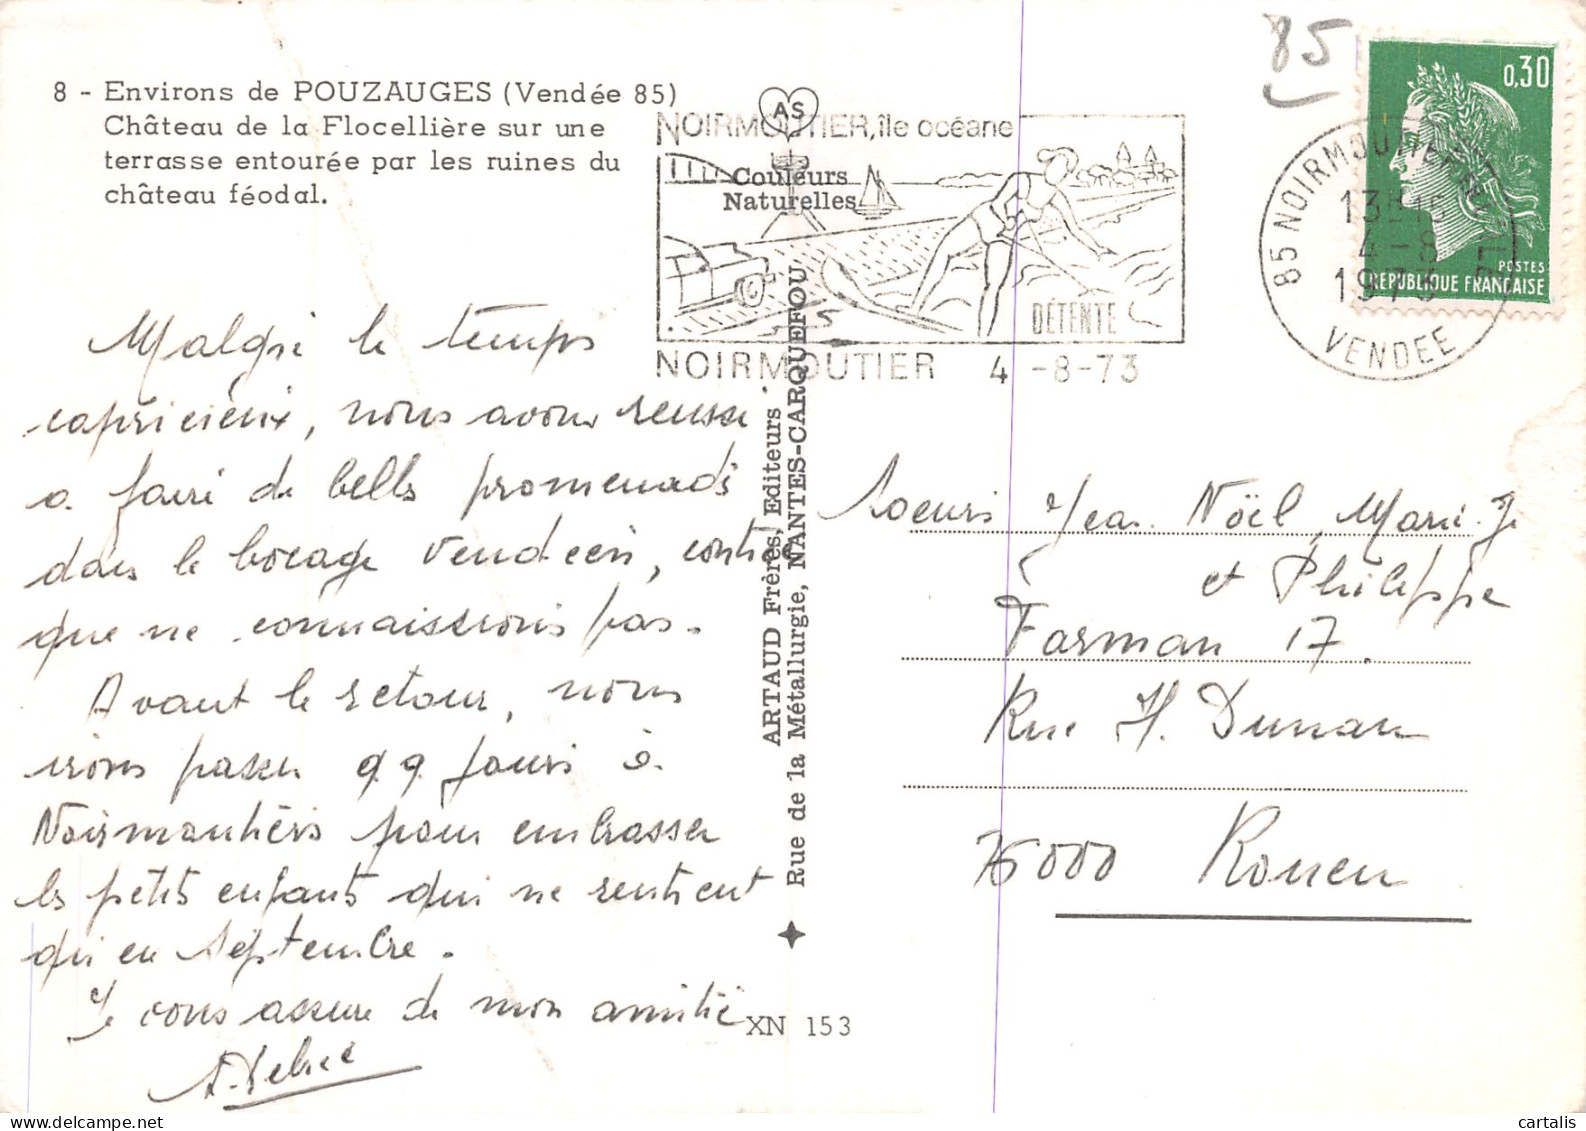 8 - Environs de POUZAUGES (Vendée 85)
Château de la Flocellière sur une
terrasse entourée par les ruines du
château féodal.
AS
Couleurs
Naturelles
NOIRMOUTIER, île océane
DÉTENTE
NOIRMOUTIER 4-8-73
85
0,30
POSTES
REPUBLIQUE FRANCAISE
85 NOIRMOUTIER
13H15
4-8
1973
VENDEE
Malgré le temps
capricieux, nous avons reussi
a faire de belles promenades
dans le bocage Vendéen,
que ne connaissions pas.
Avant le retour, nous
irons passer qq jours à
Noirmoutiers pour embrasser
les petits enfants qui ne rentrent
qui en Septembre.
Je vous assure de mon amitié
ARTAUD Frères, Editeurs
Rue de la Métallurgie, NANTES-CARQUEFOU
XN 153
Jean Noël, Marie-J
et Philippe
Farman 17.
Rue H. Dunan
76000 Rouen
cartalis